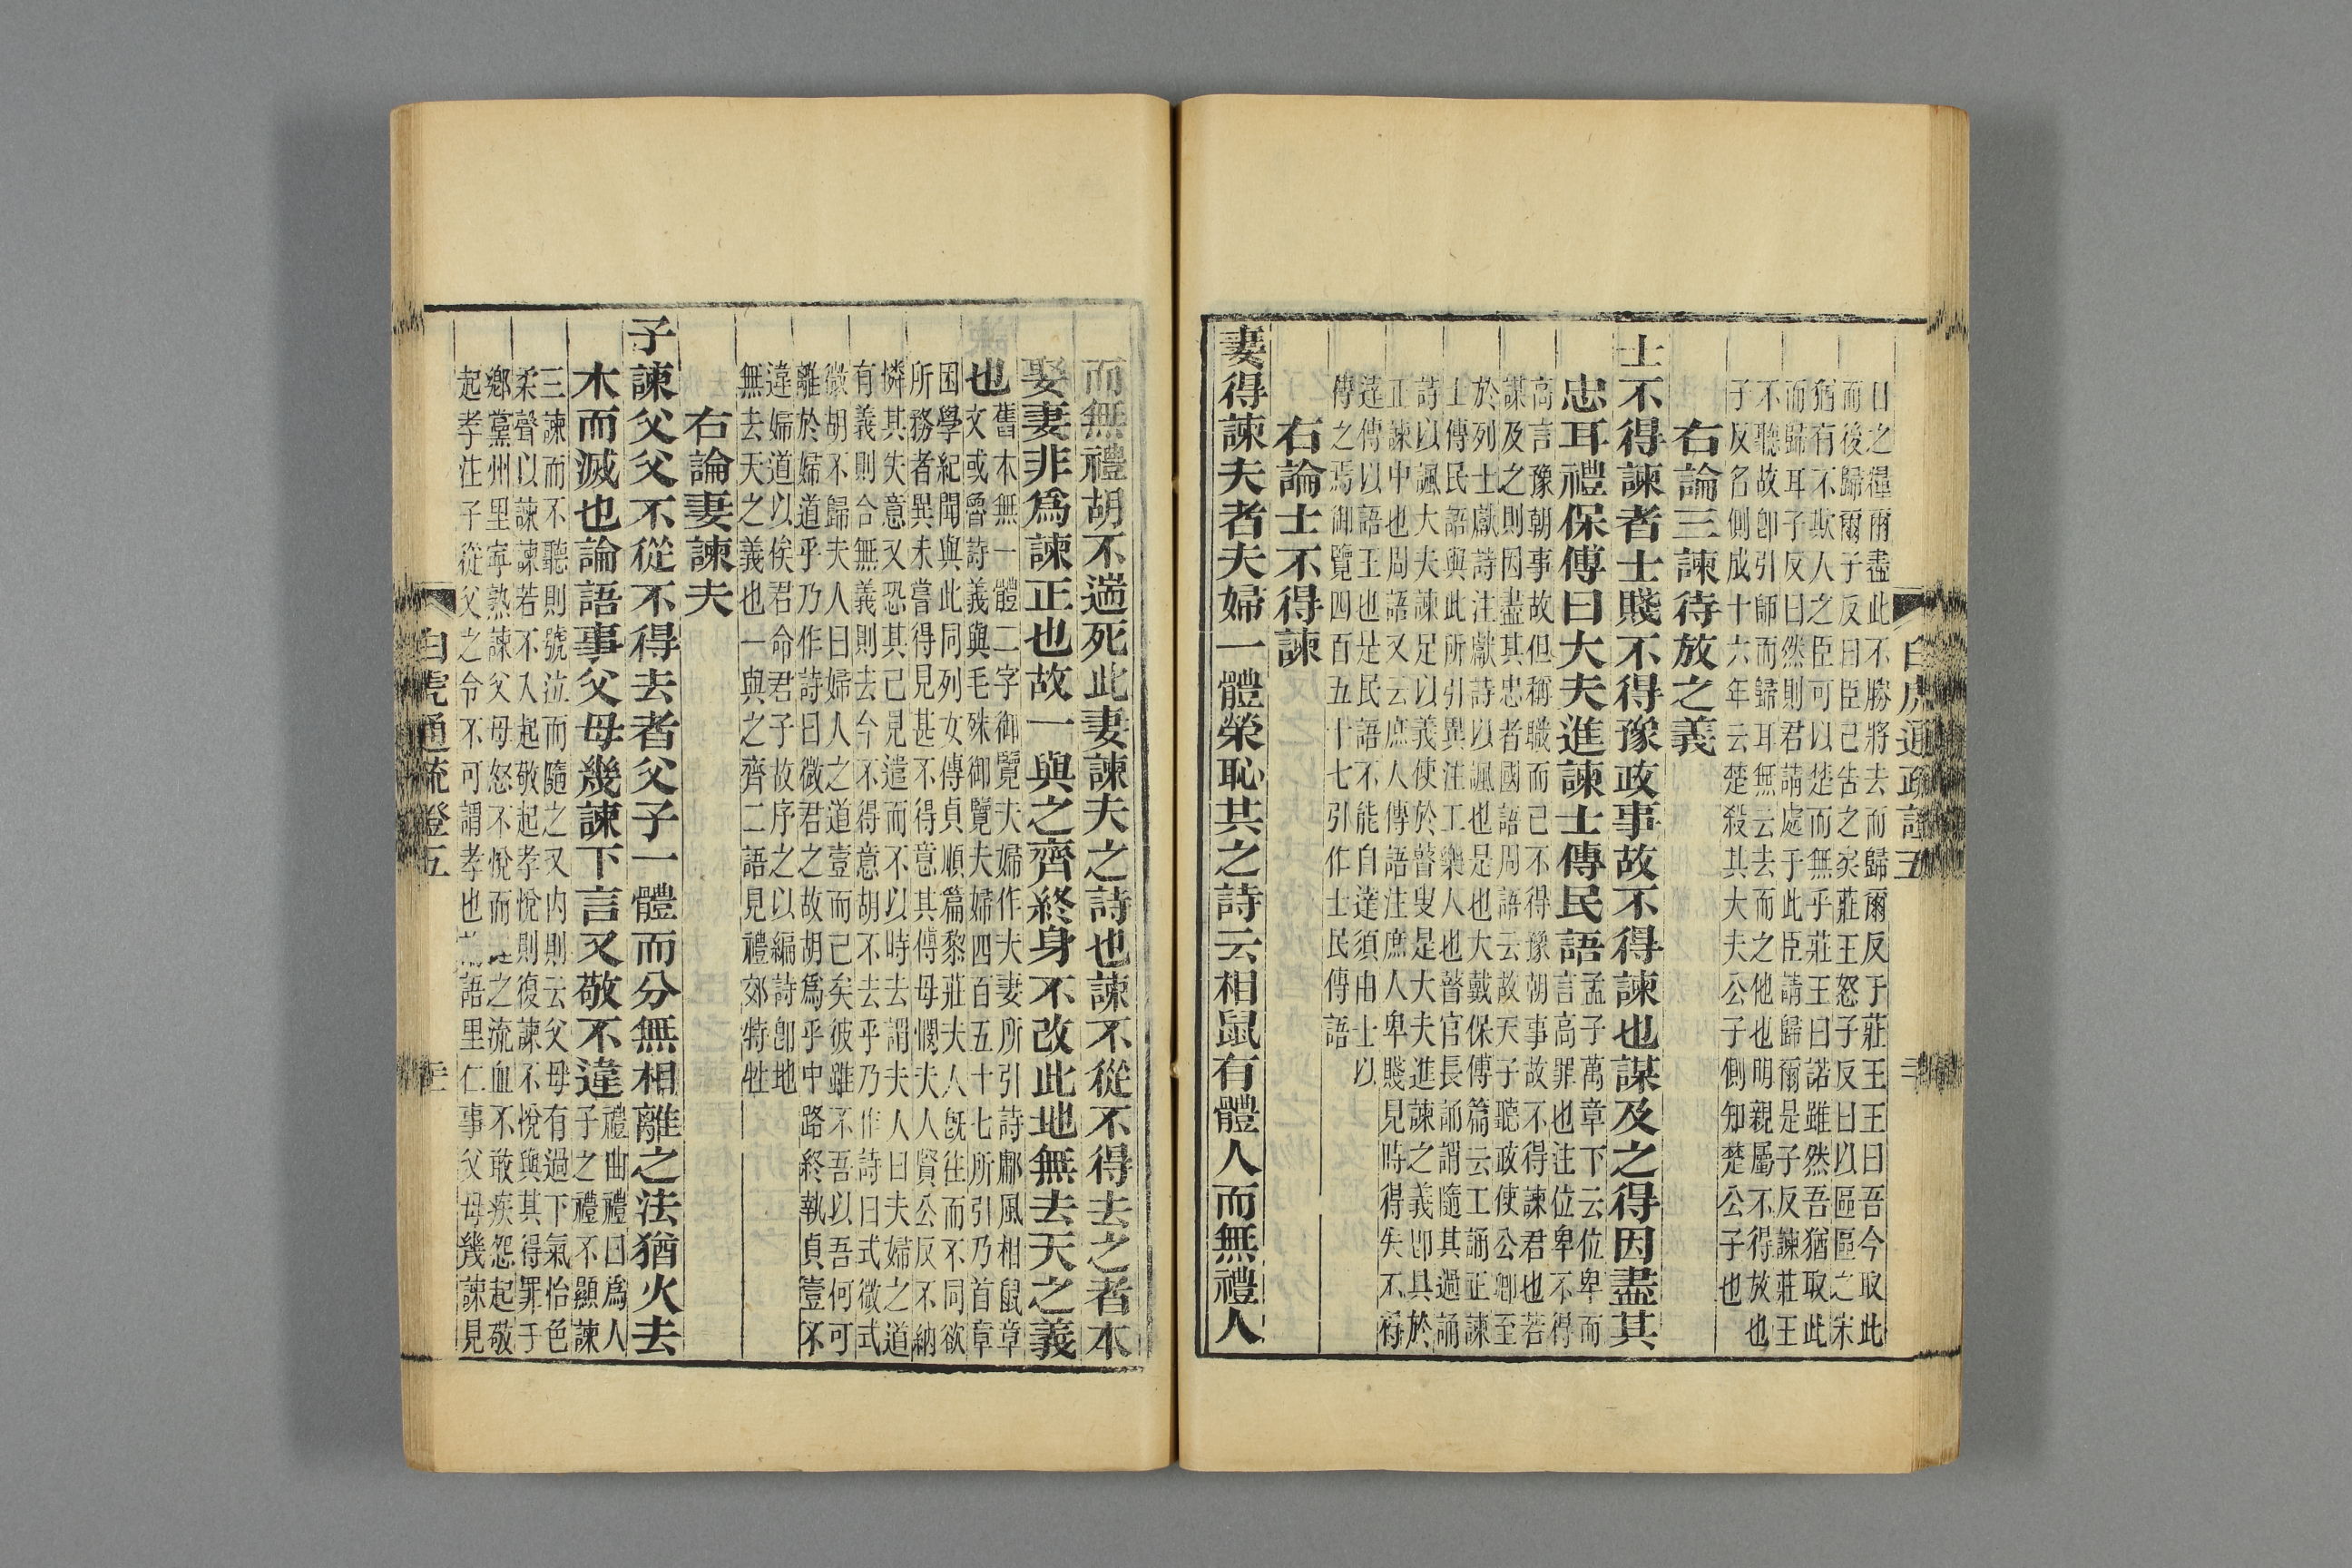 日之糧爾盡此不勝將去而歸爾反于莊王王曰吾今取此
而後歸爾子反曰臣已告之矣莊王怒子反曰以區區之宋
猶有不欺人之臣可以楚而無乎莊王曰諾雖然吾猶取此
而歸耳子反曰然則君請處于此臣請歸爾是子反諫莊王
不聽故卽引師而歸耳無云去而之他也明親屬不得放也
子反名側成十六年云楚殺其大夫公子側知楚公子也
右論三諫待放之義
士不得諫者士賤不得豫政事故不得諫也謀及之得因盡其
忠耳禮保傅曰大夫進諫士傳民語
孟子萬章下云位卑而
言高罪也注位卑不得
高言豫朝事故但稱職而已不得豫朝事故不得諫君也若
謀及之則因盡其忠者國語周語云故天子聽政使公卿至
於列士獻詩注獻詩以諷也是也大戴保傅篇云工誦正諫
士傳民語與此所引異注工樂人也瞽官長誦謂隨其過誦
詩以諷大夫諫足以義使於瞽叟是大夫進諫之義卽具於
正諫中也周語又云庶人傳語注庶人卑賤見時得失不得
達傳以語王也是民語不能自達須由士以
傳之焉御覽四百五十七引作士民傳語
右論士不得諫
妻得諫夫者夫婦一體榮恥共之詩云相鼠有體人而無禮人
白虎通疏證五
而無禮胡不遄死此妻諫夫之詩也諫不從不得去之者本
娶妻非爲諫正也故一與之齊終身不改此地無去天之義
也
舊本無一體二字御覽夫婦作夫妻所引詩鄘風相鼠章
文或魯詩義與毛殊御覽夫婦四百五十七所引乃首章
困學紀聞與此同列女傳貞順篇黎莊夫人旣往而不同欲
所務者異未嘗得見甚不得意其傅母憫夫人賢公反不納
憐其失意又恐其已見遣而不以時去謂夫人曰夫婦之道
有義則合無義則去今不得意胡不去乎乃作詩曰式微式
微胡不歸夫人曰婦人之道壹而已矣彼雖不吾以吾何可
離於婦道乎乃作詩曰微君之故胡爲乎中路終執貞壹不
違婦道以俟君命君子故序之以編詩卽地
無去天之義也一與之齊二語見禮郊特牲
右論妻諫夫
子諫父父不從不得去者父子一體而分無相離之法猶火去
木而滅也論語事父母幾諫下言又敬不違
禮曲禮曰爲人
子之禮不顯諫
三諫而不聽則號泣而隨之又內則云父母有過下氣怡色
柔聲以諫諫若不入起敬起孝悅則復諫不悅與其得罪于
鄉黨州里寧熟諫父母怒不悅而之流血不敢疾怨起敬
起孝注子從父之令不可謂孝也語里仁事父母幾諫見
白虎通疏證五